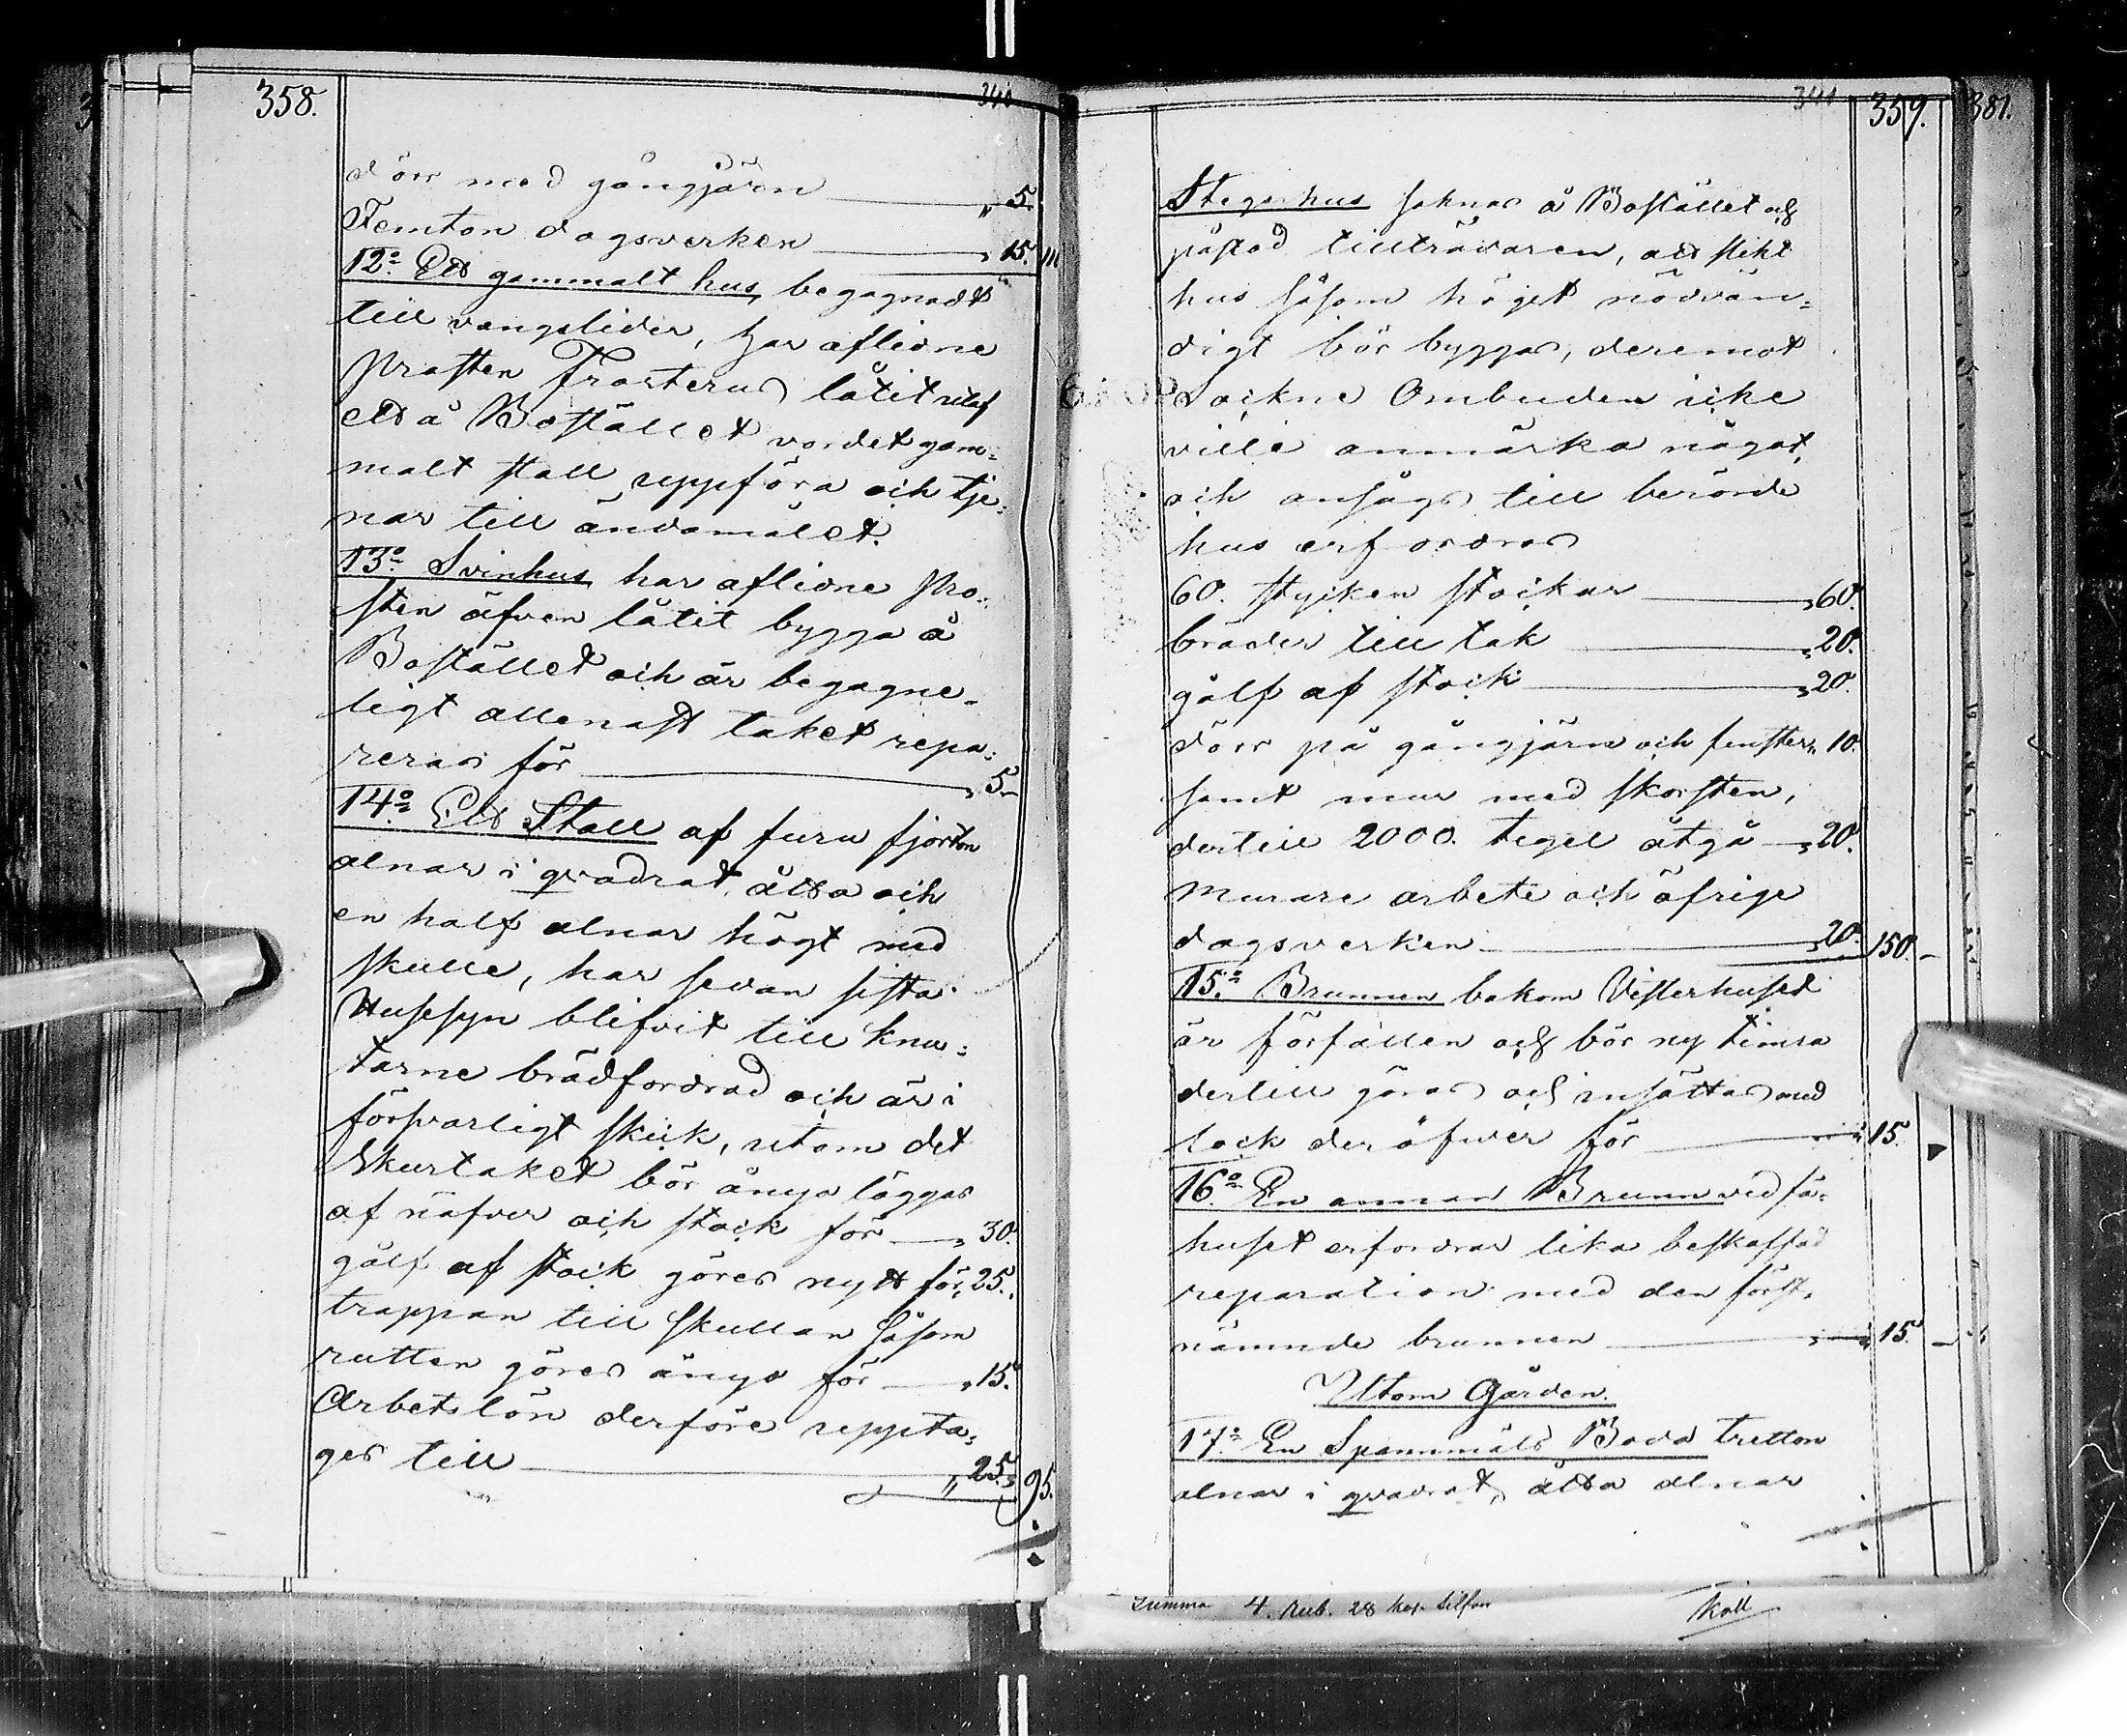 358.
340
dörr med gångjärn " 5.
Femton dagsverken " 15.
12:o Ett gammalt hus, begagnadt
till vangslider, har aflidne
Prosten Frosterus låtit utaf
ett å Bostället vordet gam=
malt stall uppföra och tje=
nar till ändamålet.
13:o Svinhus har aflidne Pro=
sten äfven låtit bygga å
Bostället och är begagne=
ligt allenast taket repa=
reras för " 5.
14:o Ett Stall af furu fjorton
alnar i qvadrat, åtta och
en half alnar högt med
skulle, har sedan sista
Hussyn blifvit till knu=
tarne brädfordrad och är i
försvarligt skick, utom det
Skurtaket bör ånyo läggas
af näfver och stock för " 30.
gålf af stock göres nytt för " 25.
trappan till skullan såsom
rutten göres ånyo för " 15.
Arbetslön derföre uppta=
ges till " 25. 95.
341
359.
381.
Stegerhus saknas å Bostället och
påstod tillträdaren, att slikt
hus såsom höget nödvän=
digt bör byggas, deremot
Sockne Ombuden icke
ville anmärka något,
och ansågs till berörde
hus erfordras
60. stycken stockar " 60.
bräder till tak " 20.
gålf af stock " 20.
dörr på gångjärn och fenster " 10.
samt mur med skorsten,
dertill 2000. tegel åtgå " 20.
Murare arbete och öfrige
dagsverken " 20. 150. -
15:o Brunnen bakom Vesterhuset
är förfallen och bör ny timra
dertill göras och insättas med
lock deröfver för " 15.
16:o En annan Brunn vid fä=
huset erfordrar lika beskaffad
reparation med den först=
nämnde brunnen " 15. -
Utom Gården.
17:o En Spannmåls Boda tretton
alnar i qvadrat, åtta alnar
Summa 4. Rub. 28 kop Silfver